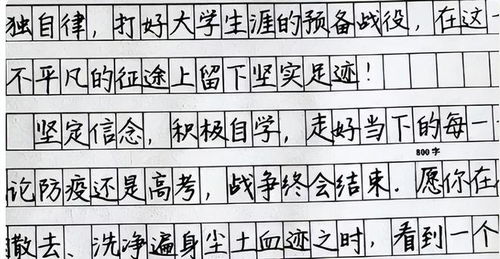 独自律，打好大学生涯的预备战役，在这一
不平凡的征途上留下坚实足迹！
坚定信念，积极自学，走好当下的每一
800字
论防疫还是高考，战争终会结束.愿你在
散去、洗净遍身尘土血迹之时，看到一个